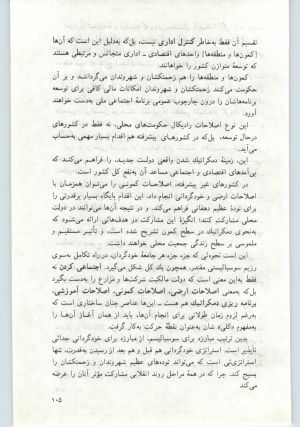 تقسیم آن فقط به‌خاطر کنترل اداری نیست، بل‌که به‌دلیل این است که آن‌ها
[کمون‌ها و منطقه‌ها] واحدهای اقتصادی ـ اداری متجانس و مرتبطی هستند
که توسعهٔ متوازن کشور را خواهانند.
کمون‌ها و منطقه‌ها را هم زحمتکشان و شهروندان می‌گردانند و بر آن
حکومت می‌کنند زحمتکشان و شهروندان امکانات مالی کافی برای توسعه
برنامه‌هاشان را درون چارچوب عمومی برنامهٔ اجتماعی ملی به‌دست خواهند
آورد.
این نوع اصلاحات رادیکال حکومت‌های محلی، نه فقط در کشورهای
درحال توسعه، بل‌که در کشورهای پیشرفته هم اقدام بسیار مهمی به‌حساب
می‌آید.
این، زمینهٔ دمکراتیک شدن واقعی دولت جدید، را فراهم می‌کند که
بی‌آمدهای اقتصادی و اجتماعی مساعد آن به‌نفع کل کشور است.
در کشورهای غیر پیشرفته، اصلاحات کمونی را می‌توان همزمان با
اصلاحات ارضی و خودگردانی انجام داد. این اقدام پایگاه بسیار پرقدرتی را
برای تودهٔ عظیم دهقانی فراهم می‌کند، و در نتیجه آن‌ها می‌توانند در دولت
محلی مشارکت کنند؛ انگیزهٔ این مشارکت در هدف‌هائی ارائه می‌شود که
به‌نحوی دمکراتیک در سطح کمون تشریح شده است، و تأثیر مستقیم و
ملموسی بر سطح زندگی جمعیت محلی خواهند داشت.
این است نحوه‌ئی که جزء جزء هر جامعهٔ خودگردان، در راه تکامل به‌سوی
رژیم سوسیالیستی مقتدر، همچون یک کل شکل می‌گیرد. اجتماعی کردن نه
فقط به‌این معنی است که دولت مالکیت شرکت‌ها و مزارع را به‌دست بگیرد
بل‌که به‌معنی اصلاحات ارضی، اصلاحات کمونی، اصلاحات آموزشی،
برنامه ریزی دمکراتیک هم هست ـ این‌ها عناصر چنان ساختاری است که
به‌رغم لزوم زمان طولانی برای انجام آن‌ها، باید از همان آغاز آن‌ها را
به‌مفهوم «کلی» شان به‌عنوان نقطهٔ حرکت به‌کار گرفت.
بدین ترتیب مبارزه برای سوسیالیسم، از مبارزه برای خودگردانی جدائی
ناپذیر است. استراتژی خودگردانی هم قبل و هم بعد از رسیدن به‌قدرت، تنها
استراتژی‌ئی است که می‌تواند توده‌های عظیم شهروندان و زحمتکشان را
بسیج کند. چرا که در همهٔ مراحل روند انقلابی مشارکت مؤثر آنان را عرضه
می‌کند
۱۰۵